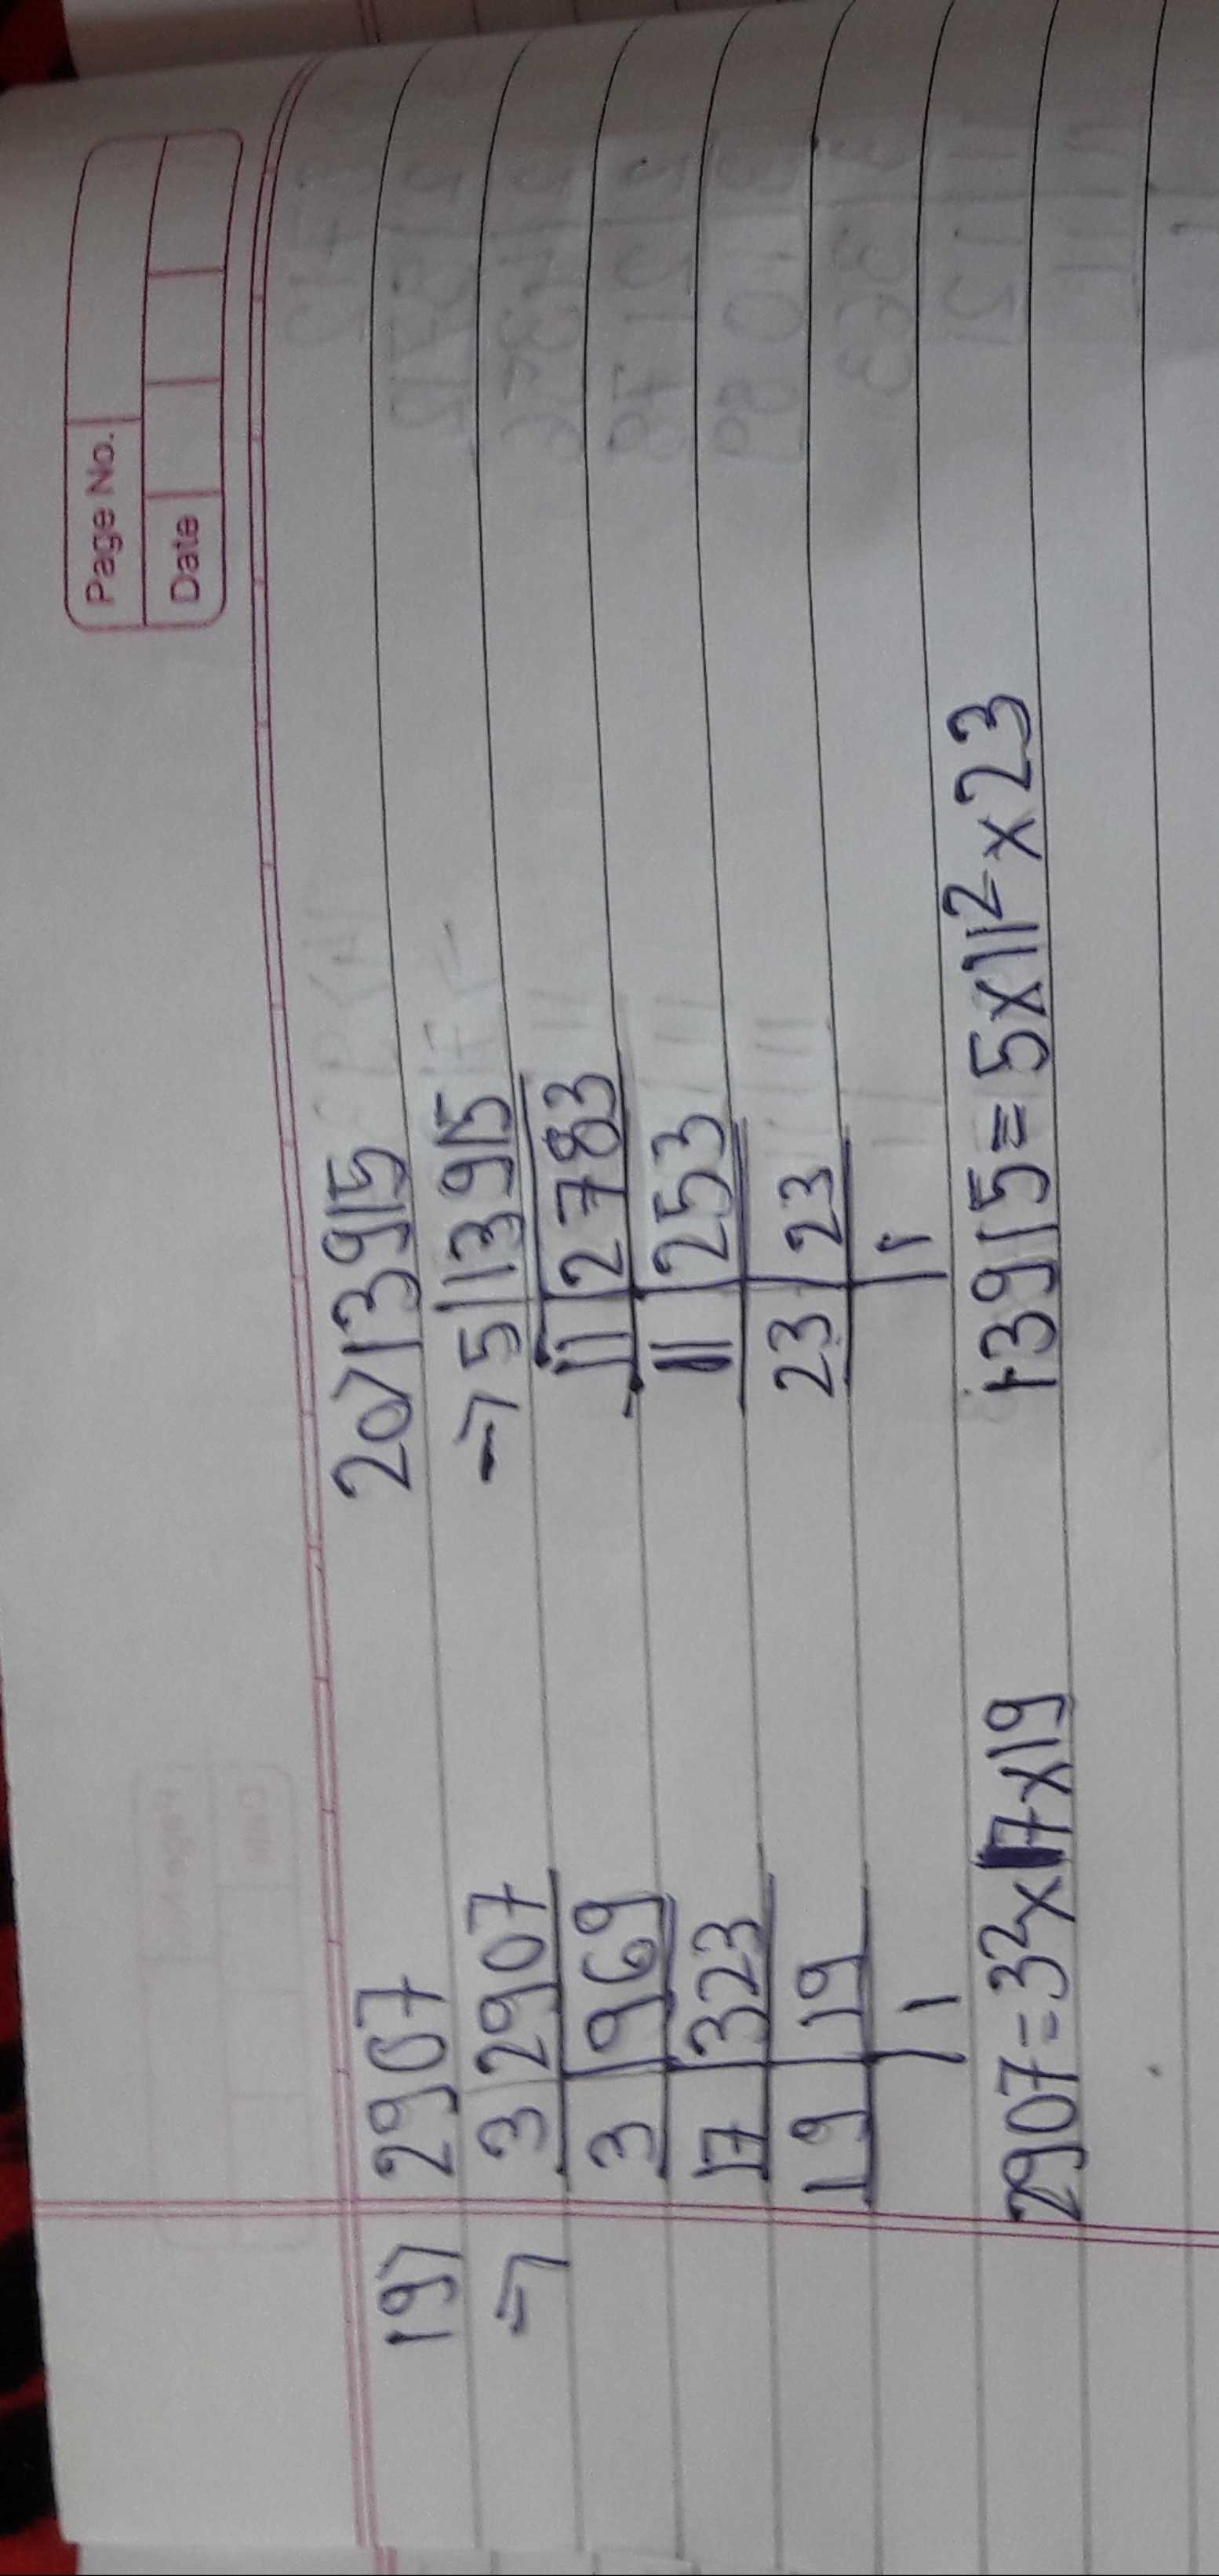 Page No.
Date
19) 2907
⇒ 3 | 2907
3 | 969
17 | 323
19 | 19
1
2907 = 3² × 17 × 19
20) 13915
⇒ 5 | 13915
11 | 2783
11 | 253
23 | 23
1
13915 = 5 × 11² × 23